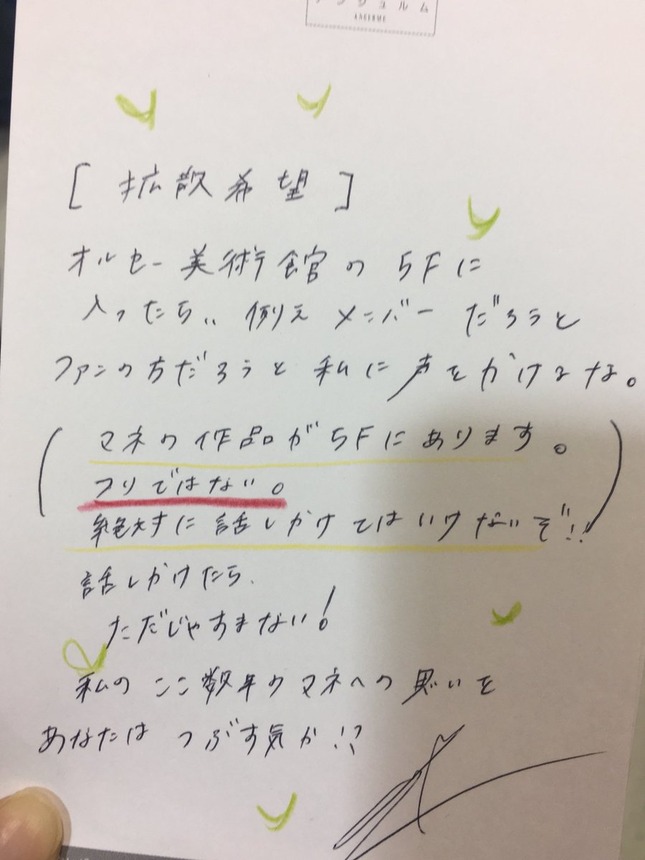 アンジュルム
ANGERME
[拡散希望]
オルセー美術館の5Fに
入ったら、、例え メンバーだろうと
ファンの方だろうと私に声をかけるな。
(マネの作品が5Fにあります。
フリではない。
絶対に話しかけてはいけないぞ!!)
話しかけたら、
ただじゃすまない!
私のここ数年のマネへの思いを
あなたは つぶす気か!?